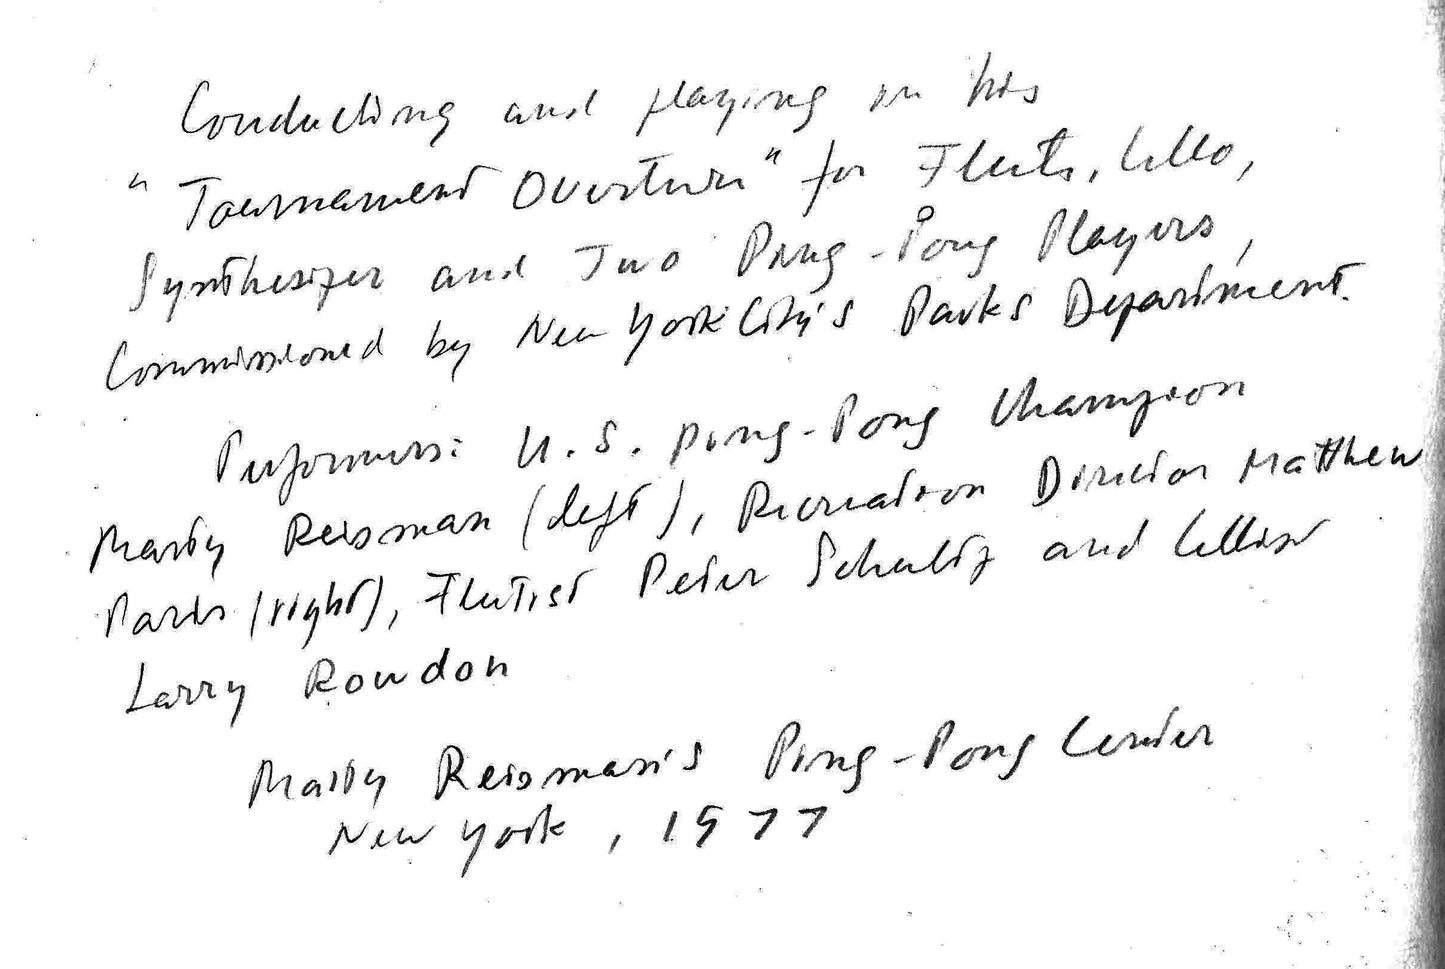 Conducting and playing in his
"Tournament Overture" for Flute, Cello,
Synthesizer and Two Ping-Pong Players,
Commissioned by New York City's Parks Department.
Performers: U.S. Ping-Pong Champion
Marty Reisman (left), Recreation Director Matthew
Paris (right), Flutist Peter Schultz and Cellist
Larry Rowdon
Marty Reisman's Ping-Pong Center
New York, 1977